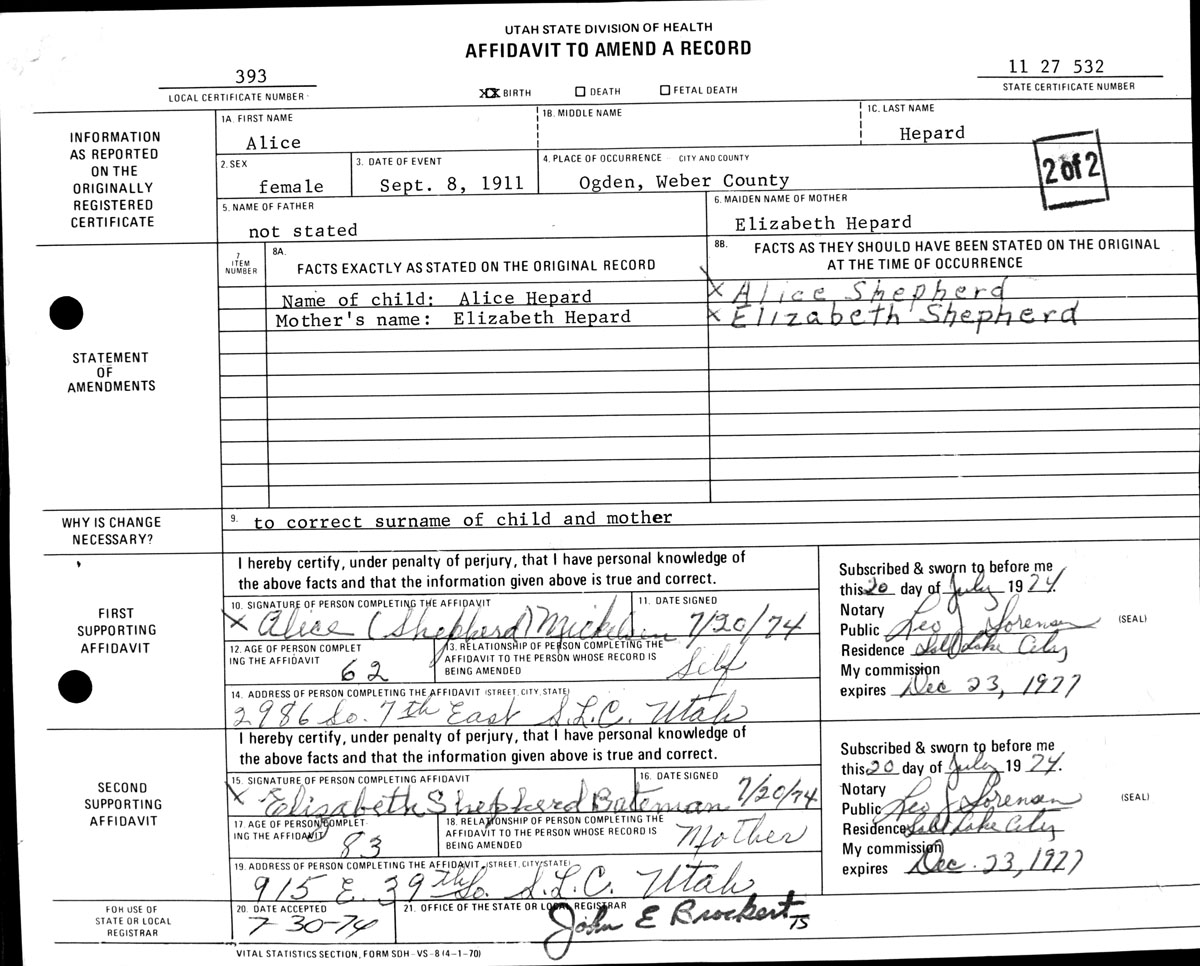 UTAH STATE DIVISION OF HEALTH
AFFIDAVIT TO AMEND A RECORD
393
LOCAL CERTIFICATE NUMBER
XX BIRTH ☐ DEATH ☐ FETAL DEATH
11 27 532
STATE CERTIFICATE NUMBER
INFORMATION
AS REPORTED
ON THE
ORIGINALLY
REGISTERED
CERTIFICATE
1A. FIRST NAME
Alice
1B. MIDDLE NAME
1C. LAST NAME
Hepard
2. SEX
female
3. DATE OF EVENT
Sept. 8, 1911
4. PLACE OF OCCURRENCE - CITY AND COUNTY
Ogden, Weber County
2 of 2
5. NAME OF FATHER
not stated
6. MAIDEN NAME OF MOTHER
Elizabeth Hepard
STATEMENT
OF
AMENDMENTS
7
ITEM
NUMBER
8A.
FACTS EXACTLY AS STATED ON THE ORIGINAL RECORD
8B. FACTS AS THEY SHOULD HAVE BEEN STATED ON THE ORIGINAL
AT THE TIME OF OCCURRENCE
Name of child: Alice Hepard
X Alice Shepherd
Mother's name: Elizabeth Hepard
X Elizabeth Shepherd
WHY IS CHANGE
NECESSARY?
9. to correct surname of child and mother
FIRST
SUPPORTING
AFFIDAVIT
I hereby certify, under penalty of perjury, that I have personal knowledge of
the above facts and that the information given above is true and correct.
10. SIGNATURE OF PERSON COMPLETING THE AFFIDAVIT
X Alice (Shepherd) Mickelsen
11. DATE SIGNED
7/20/74
12. AGE OF PERSON COMPLET
ING THE AFFIDAVIT
62
13. RELATIONSHIP OF PERSON COMPLETING THE
AFFIDAVIT TO THE PERSON WHOSE RECORD IS
BEING AMENDED
Self
14. ADDRESS OF PERSON COMPLETING THE AFFIDAVIT (STREET, CITY, STATE)
2986 So. 7th East S.L.C. Utah
Subscribed & sworn to before me
this 20 day of July 19 74.
Notary
Public Leo J Sorensen (SEAL)
Residence Salt Lake City
My commission
expires Dec 23, 1977
SECOND
SUPPORTING
AFFIDAVIT
I hereby certify, under penalty of perjury, that I have personal knowledge of
the above facts and that the information given above is true and correct.
15. SIGNATURE OF PERSON COMPLETING AFFIDAVIT
X Elizabeth Shepherd Bateman
16. DATE SIGNED
7/20/74
17. AGE OF PERSON COMPLET-
ING THE AFFIDAVIT
83
18. RELATIONSHIP OF PERSON COMPLETING THE
AFFIDAVIT TO THE PERSON WHOSE RECORD IS
BEING AMENDED
Mother
19. ADDRESS OF PERSON COMPLETING THE AFFIDAVIT, (STREET, CITY STATE)
915 E. 39th So. S.L.C. Utah
Subscribed & sworn to before me
this 20 day of July 19 74.
Notary
Public Leo J Sorensen (SEAL)
Residence Salt Lake City
My commission
expires Dec. 23, 1977
FOR USE OF
STATE OR LOCAL
REGISTRAR
20. DATE ACCEPTED
7-30-74
21. OFFICE OF THE STATE OR LOCAL REGISTRAR
John E Brockert TS
VITAL STATISTICS SECTION, FORM SDH-VS-8 (4-1-70)